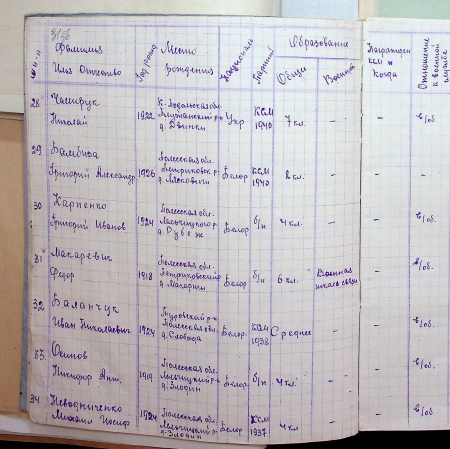 Фамилия
Имя Отчество
Год рожд
Место
рождения
Национальн
Партий
Образование
Общее
Военное
Награжден
кем и
когда
Отношение
к военной
службе
28
Николай
1922
К.-Подольская обл.
Укр
КСМ
1940
7 кл.
-
-
в/об
29
Григорий Александр
1926
Полесская обл.
Петриковск. р-
д. Лясковичи
Белор
КСМ
1940
кл.
-
-
-
30
Карпенко
Григорий Иванов
1924
Полесская обл.
Лельчицкого р-
д. Рубеж
Белор
б/п
4 кл.
-
-
в/об.
31
Макаревич
Федор
1918
Полесская обл.
Петриковский
Белор
б/п
6 кл.
Военная
школа связи
-
в/об.
32
Баланчук
Иван Николаевич
1924
Туровский р-н
Полесская обл.
д. Слобода
Белор.
КСМ
1938
Среднее
-
-
в/об.
33.
Осипов
Никифор Ант.
1919
Полесская обл.
Лельчицкий р-н
д. Злодин
Белор
б/п
4 кл.
-
-
в/об
34
Неводниченко
Михаил Иосиф
1924
Полесская обл.
Лельчицкий р-
д. Злодин
Белор
КСМ
1937
4 кл
-
-
в/об